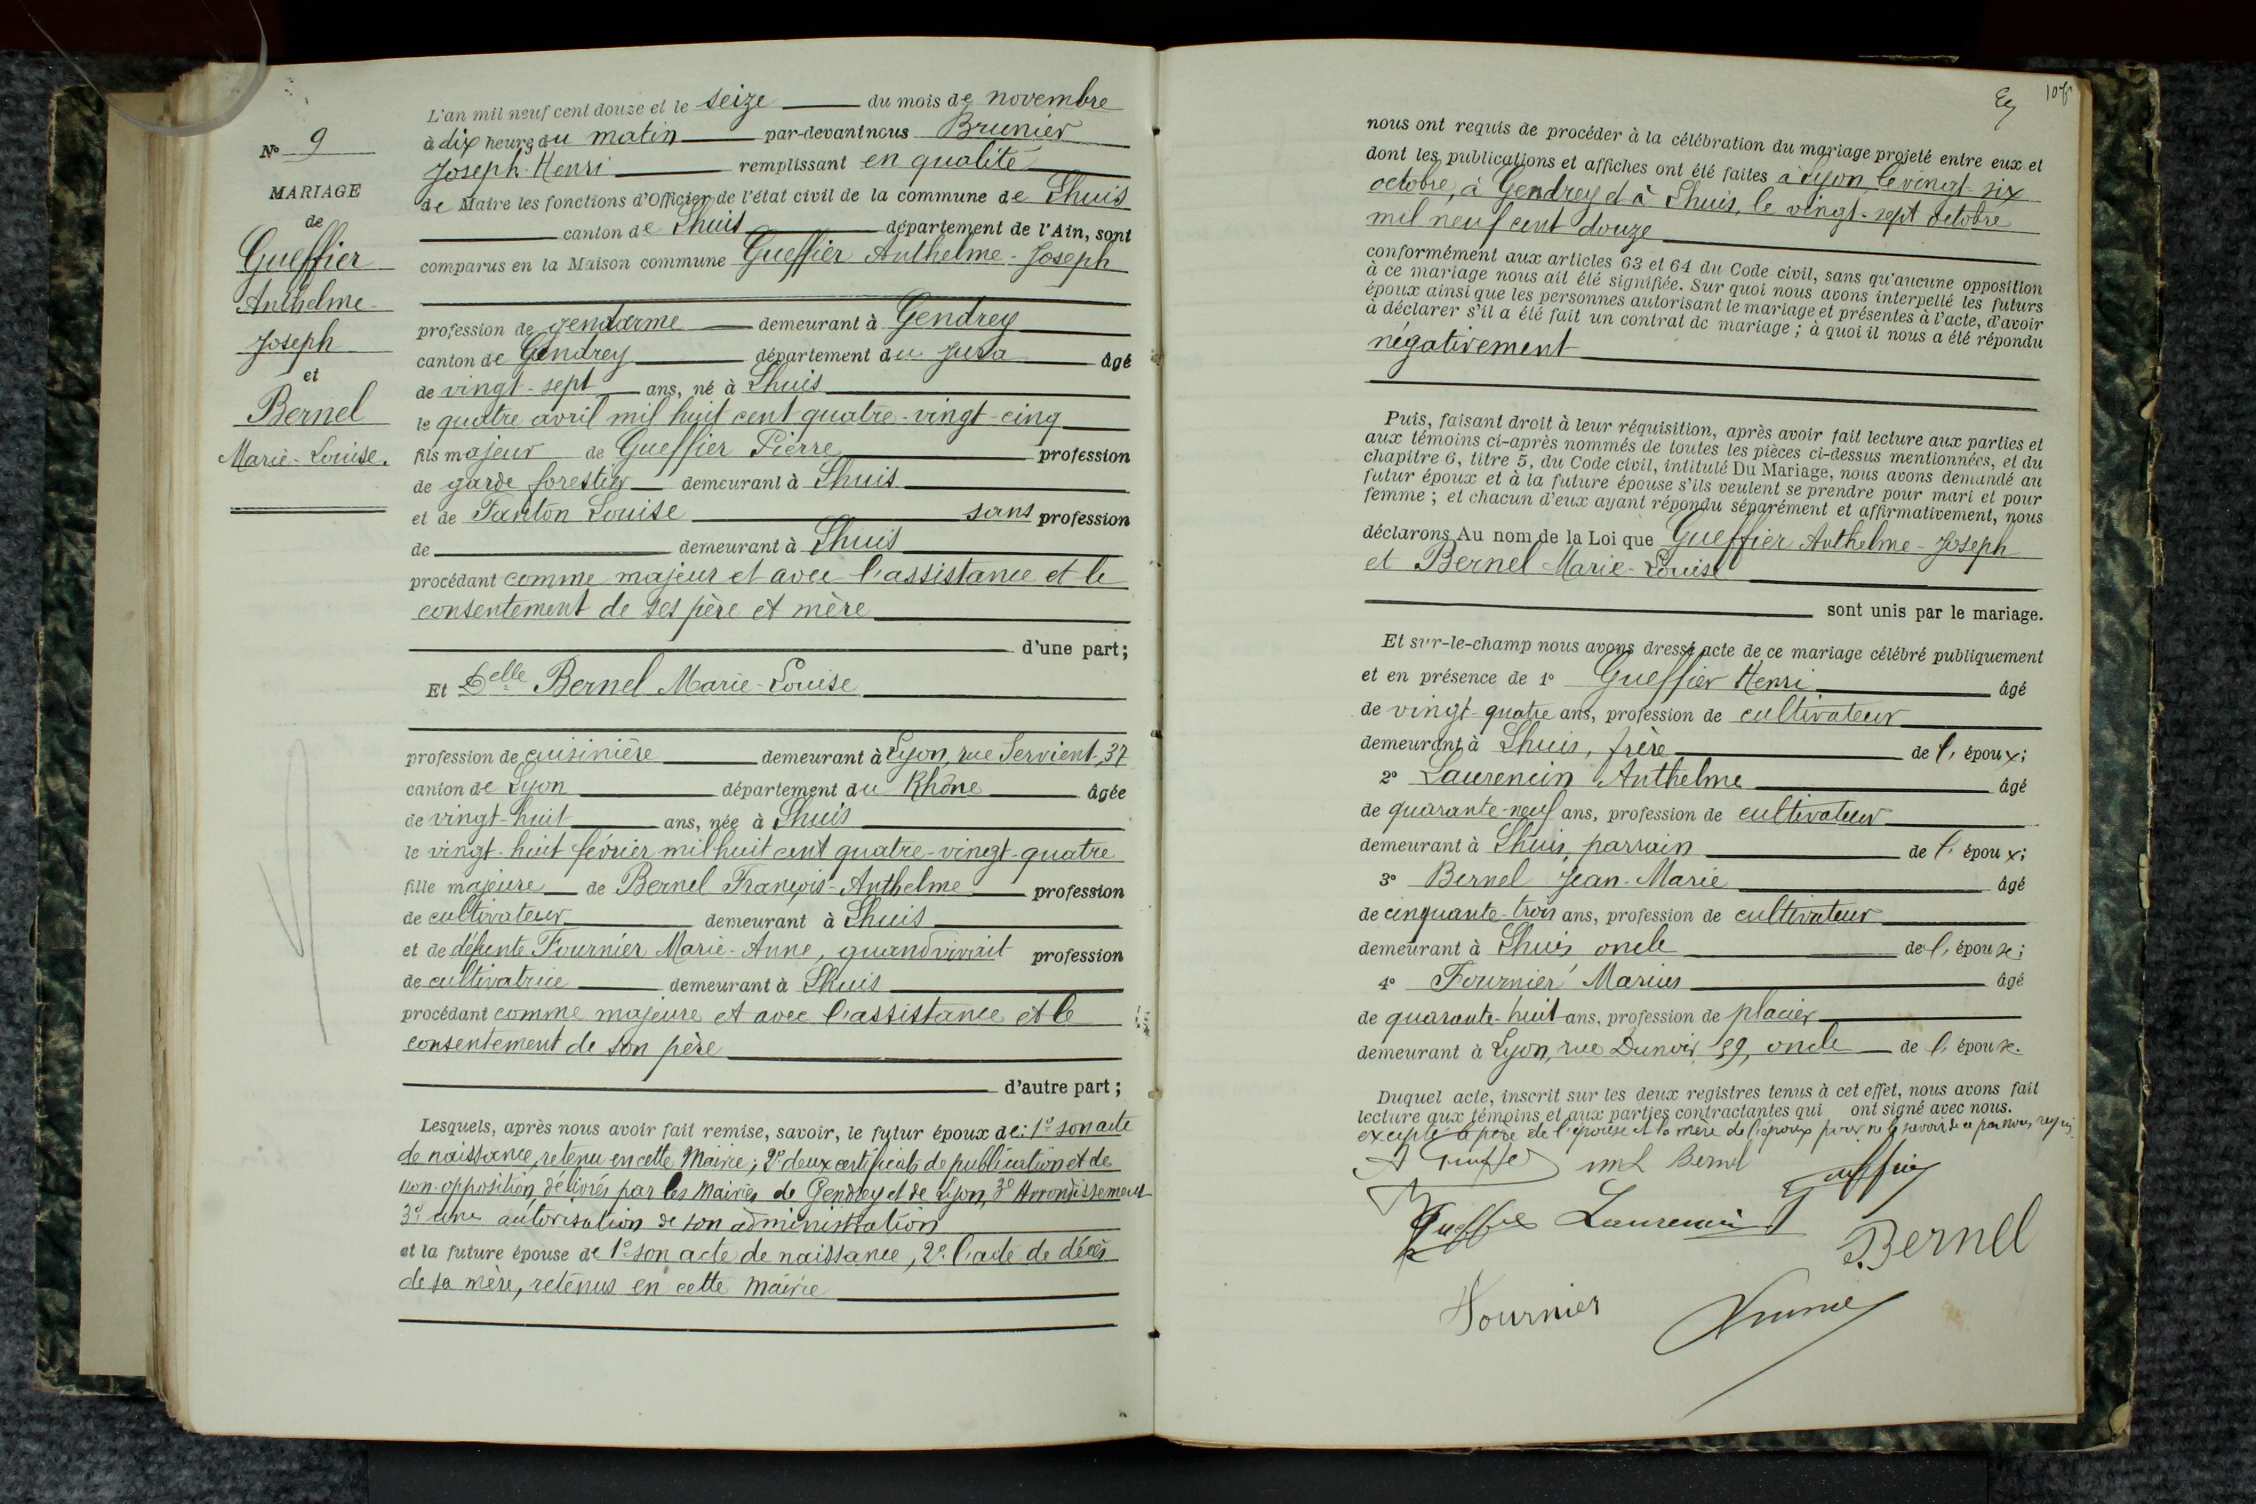 N° 9
MARIAGE
de
Gueffier
Anthelme-
Joseph
et
Bernel
Marie-Louise.
L'an mil neuf cent douze et le seize du mois de novembre
à dix heures du matin par-devant nous Brunier
Joseph-Henri remplissant en qualité
de Maire les fonctions d'Officier de l'état civil de la commune de Lhuis
canton de Lhuis département de l'Ain, sont
comparus en la Maison commune Gueffier Anthelme-Joseph
profession de gendarme demeurant à Gendrey
canton de Gendrey département du Jura âgé
de vingt-sept ans, né à Lhuis
le quatre avril mil huit cent quatre-vingt-cinq
fils majeur de Gueffier Pierre profession
de garde forestier demeurant à Lhuis
et de Fanton Louise sans profession
de demeurant à Lhuis
procédant comme majeur et avec l'assistance et le
consentement de ses père et mère
d'une part;
Et Delle Bernel Marie-Louise
profession de cuisinière demeurant à Lyon, rue Servient, 37
canton de Lyon département du Rhône âgée
de vingt-huit ans, née à Lhuis
le vingt-huit février mil huit cent quatre-vingt-quatre
fille majeure de Bernel François-Anthelme profession
de cultivateur demeurant à Lhuis
et de défunte Fournier Marie-Anne, quand vivait profession
de cultivatrice demeurant à Lhuis
procédant comme majeure et avec l'assistance et le
consentement de son père
d'autre part;
Lesquels, après nous avoir fait remise, savoir, le futur époux de: 1° son acte
de naissance, retenu en cette Mairie; 2° deux certificats de publication et de
non-opposition, délivrés par les Mairies de Gendrey et de Lyon, 3e Arrondissement
3° une autorisation de son administration
et la future épouse de 1° son acte de naissance, 2° l'acte de décès
de sa mère, retenus en cette Mairie
nous ont requis de procéder à la célébration du mariage projeté entre eux et
dont les publications et affiches ont été faites à Lyon, le vingt-six
octobre, à Gendrey et à Lhuis, le vingt-sept octobre
mil neuf cent douze
conformément aux articles 63 et 64 du Code civil, sans qu'aucune opposition
à ce mariage nous ait été signifiée. Sur quoi nous avons interpellé les futurs
époux ainsi que les personnes autorisant le mariage et présentes à l'acte, d'avoir
à déclarer s'il a été fait un contrat de mariage; à quoi il nous a été répondu
négativement
Puis, faisant droit à leur réquisition, après avoir fait lecture aux parties et
aux témoins ci-après nommés de toutes les pièces ci-dessus mentionnées, et du
chapitre 6, titre 5, du Code civil, intitulé Du Mariage, nous avons demandé au
futur époux et à la future épouse s'ils veulent se prendre pour mari et pour
femme; et chacun d'eux ayant répondu séparément et affirmativement, nous
déclarons Au nom de la Loi que Gueffier Anthelme-Joseph
et Bernel Marie-Louise
sont unis par le mariage.
Et sur-le-champ nous avons dressé acte de ce mariage célébré publiquement
et en présence de 1° Gueffier Henri âgé
de vingt-quatre ans, profession de cultivateur
demeurant à Lhuis, frère de l' époux;
2° Laurencin Anthelme âgé
de quarante-neuf ans, profession de cultivateur
demeurant à Lhuis, parrain de l' époux;
3° Bernel Jean-Marie âgé
de cinquante-trois ans, profession de cultivateur
demeurant à Lhuis oncle de l' épouse;
4° Fournier Marius âgé
de quarante-huit ans, profession de placier
demeurant à Lyon, rue Dunoir, 59, oncle de l' épouse.
Duquel acte, inscrit sur les deux registres tenus à cet effet, nous avons fait
lecture aux témoins et aux parties contractantes qui ont signé avec nous.
excepté le père de l'épouse et la mère de l'époux pour ne le savoir de ce par nous requis.
ML Bernel
Gueffier
Gueffier Laurencin
Bernel
Fournier
Brunier